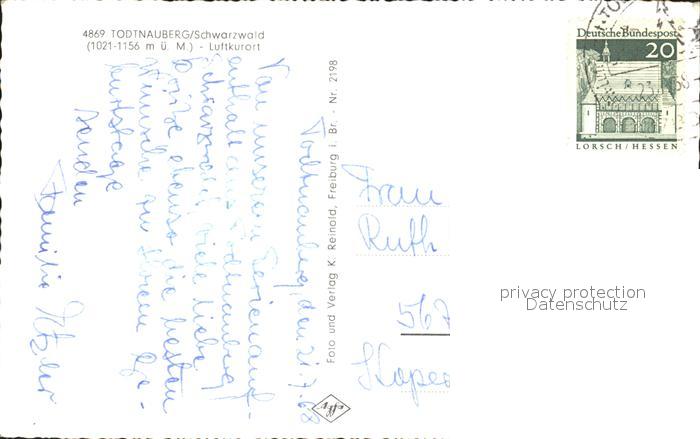 4869 TODTNAUBERG/Schwarzwald
(1021-1156 m ü. M.) - Luftkurort
Todtnauberg, den 21.7.68
Von unserem Ferienauf-
enthalt aus Todtnauberg/
Schwarzwald viele liebe
Grüße ebenso die besten
Wünsche zu Ihrem Ge-
burtstage
senden
Familie
Foto und Verlag K. Reinold, Freiburg i. Br. - Nr. 2198
Frau
Ruth
567
Deutsche Bundespost
20
LORSCH/HESSEN
privacy protection
Datenschutz